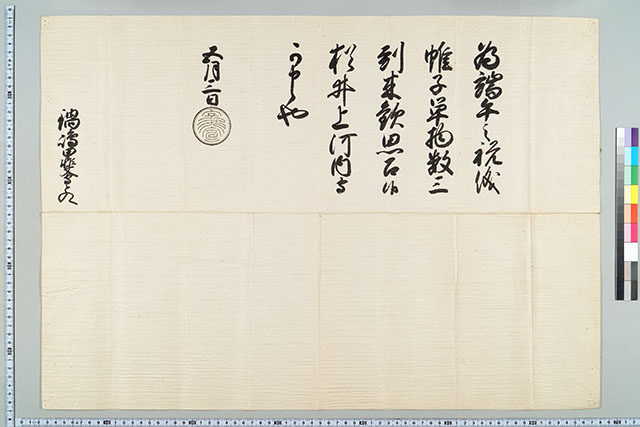 為端午之祝儀
帷子単物数三
到来歓思召候
猶井上河内守
可申也
五月二日
鍋嶋肥前守とのへ